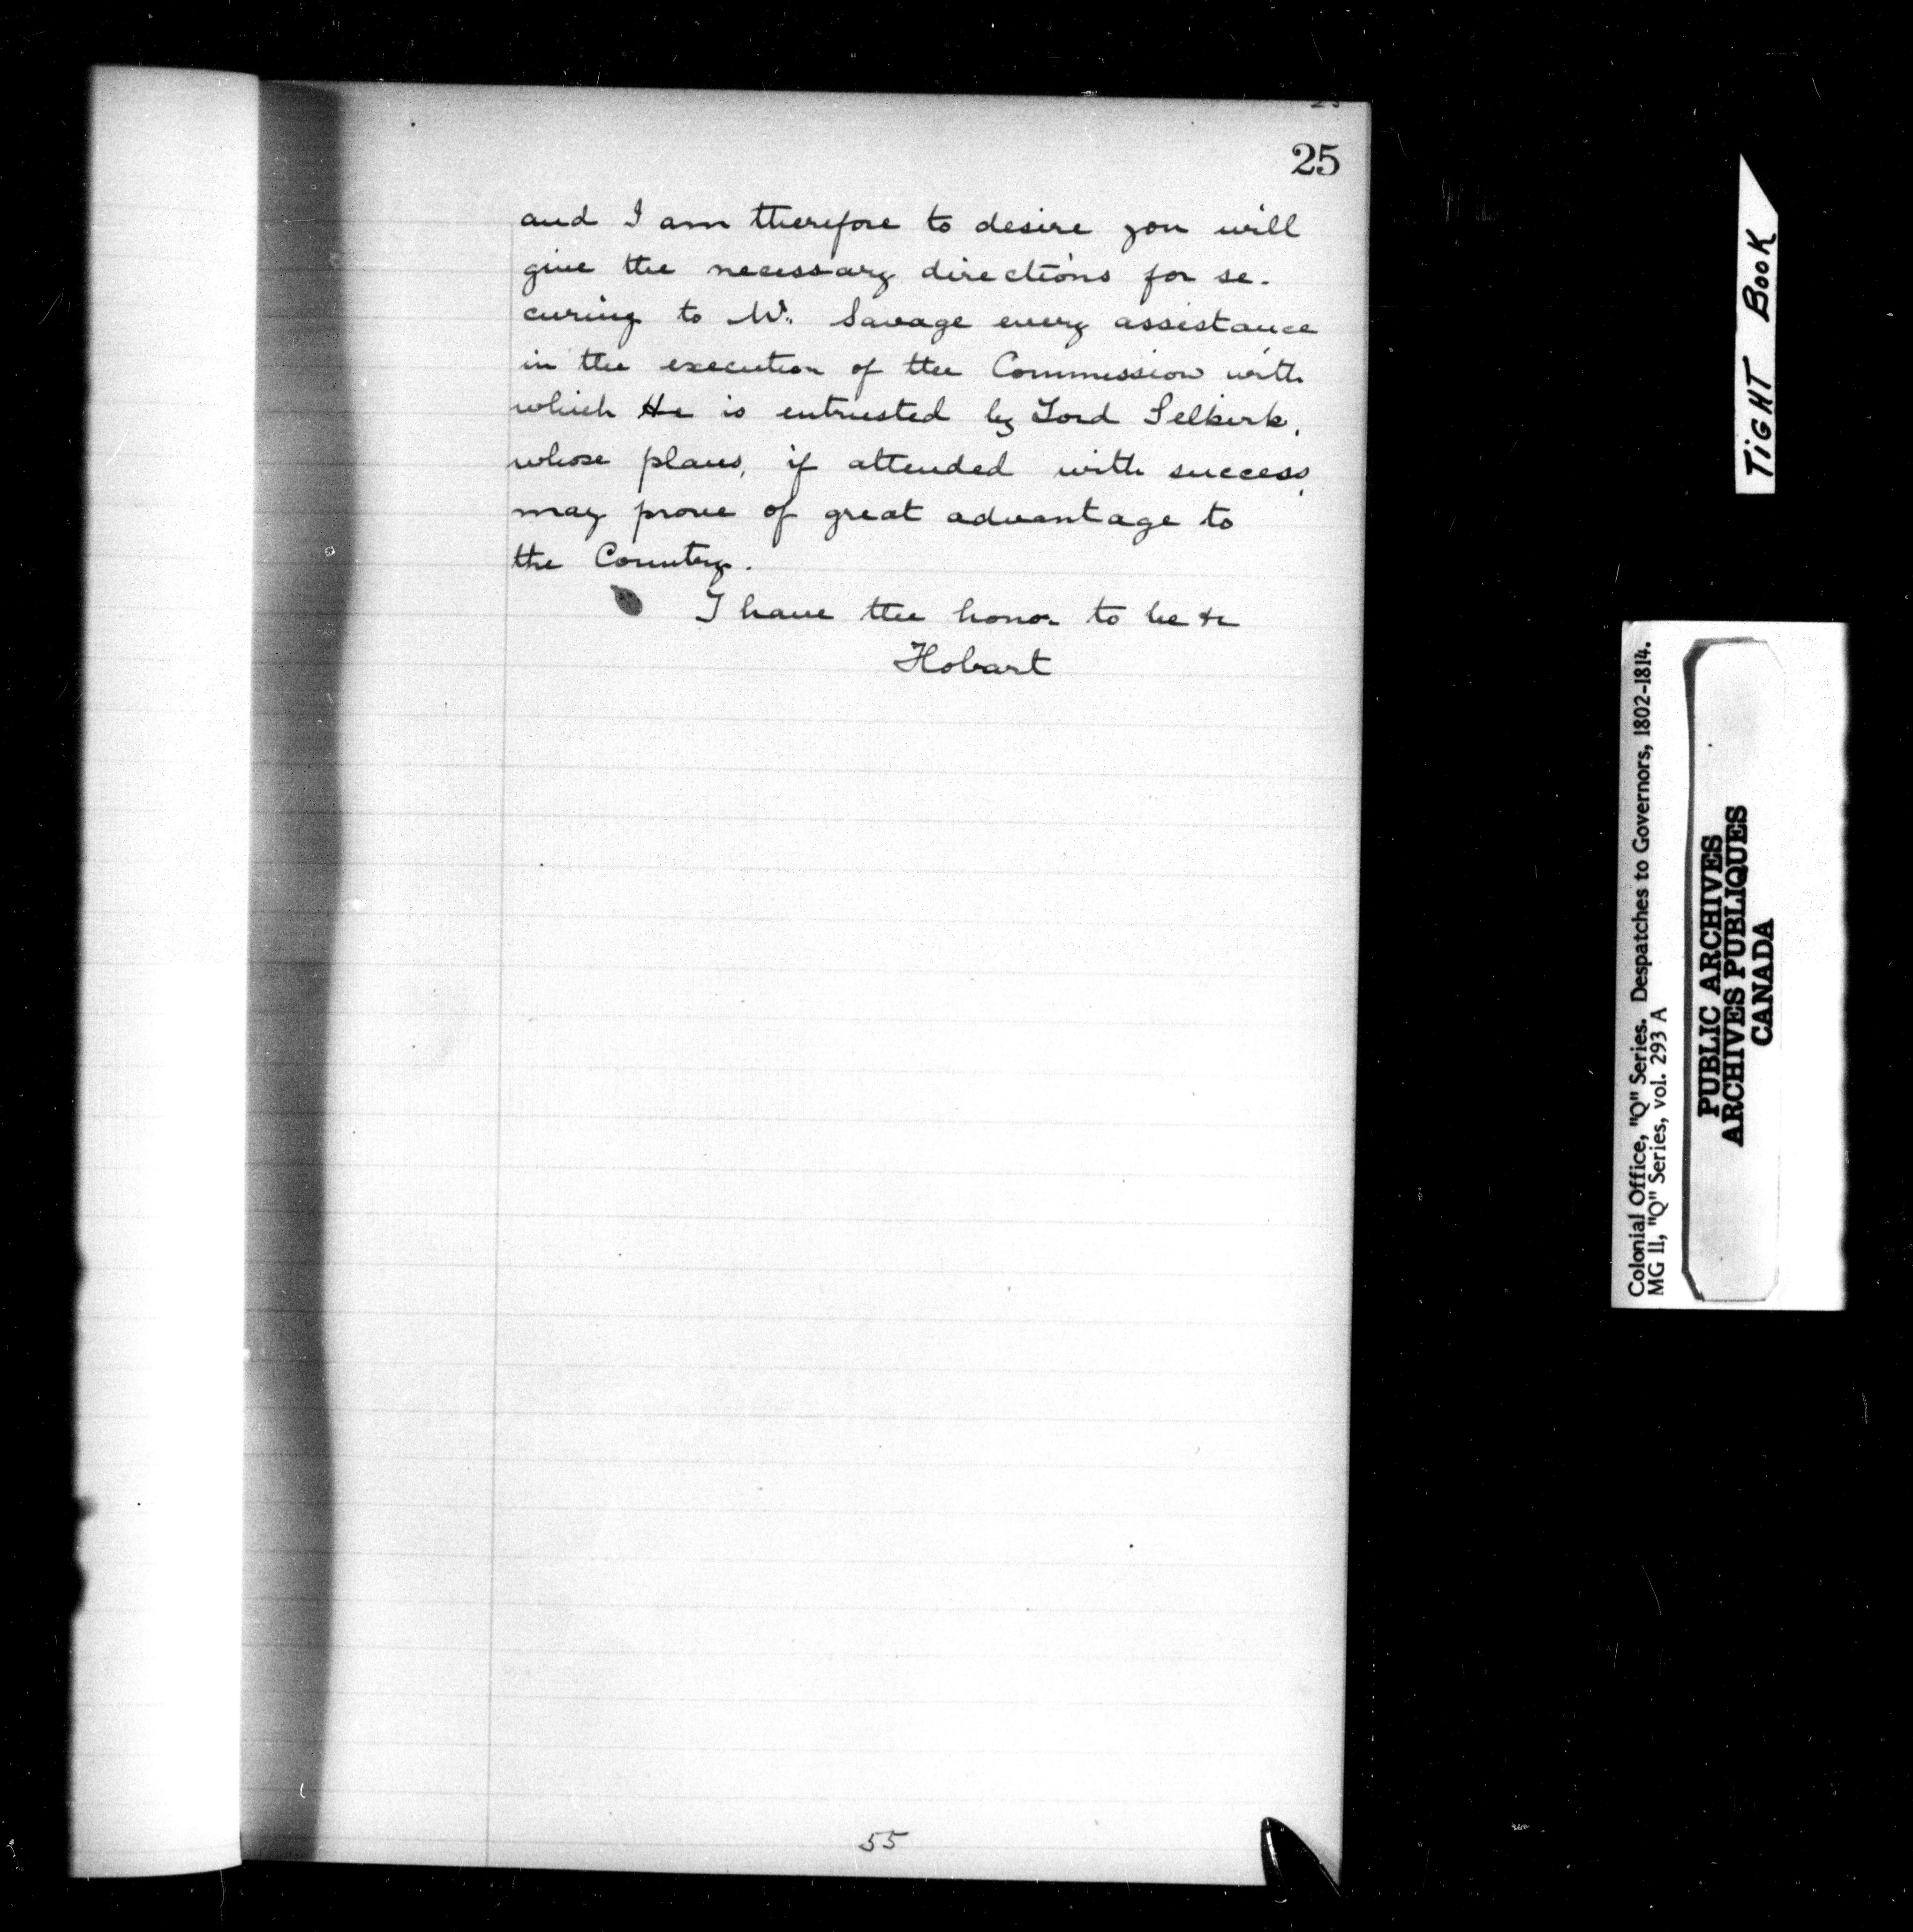 25
and I am therefore to desire you will
give the necessary directions for se-
curing to Mr. Savage every assistance
in the execution of the Commission with
which He is entrusted by Lord Selkirk,
whose plans, if attended with success,
may prove of great advantage to
the Country.
I have the honor to be &c
Hobart
55
TIGHT BOOK
Colonial Office, "Q" Series. Despatches to Governors, 1802-1814.
MG 11, "Q" Series, vol. 293 A
PUBLIC ARCHIVES
ARCHIVES PUBLIQUES
CANADA